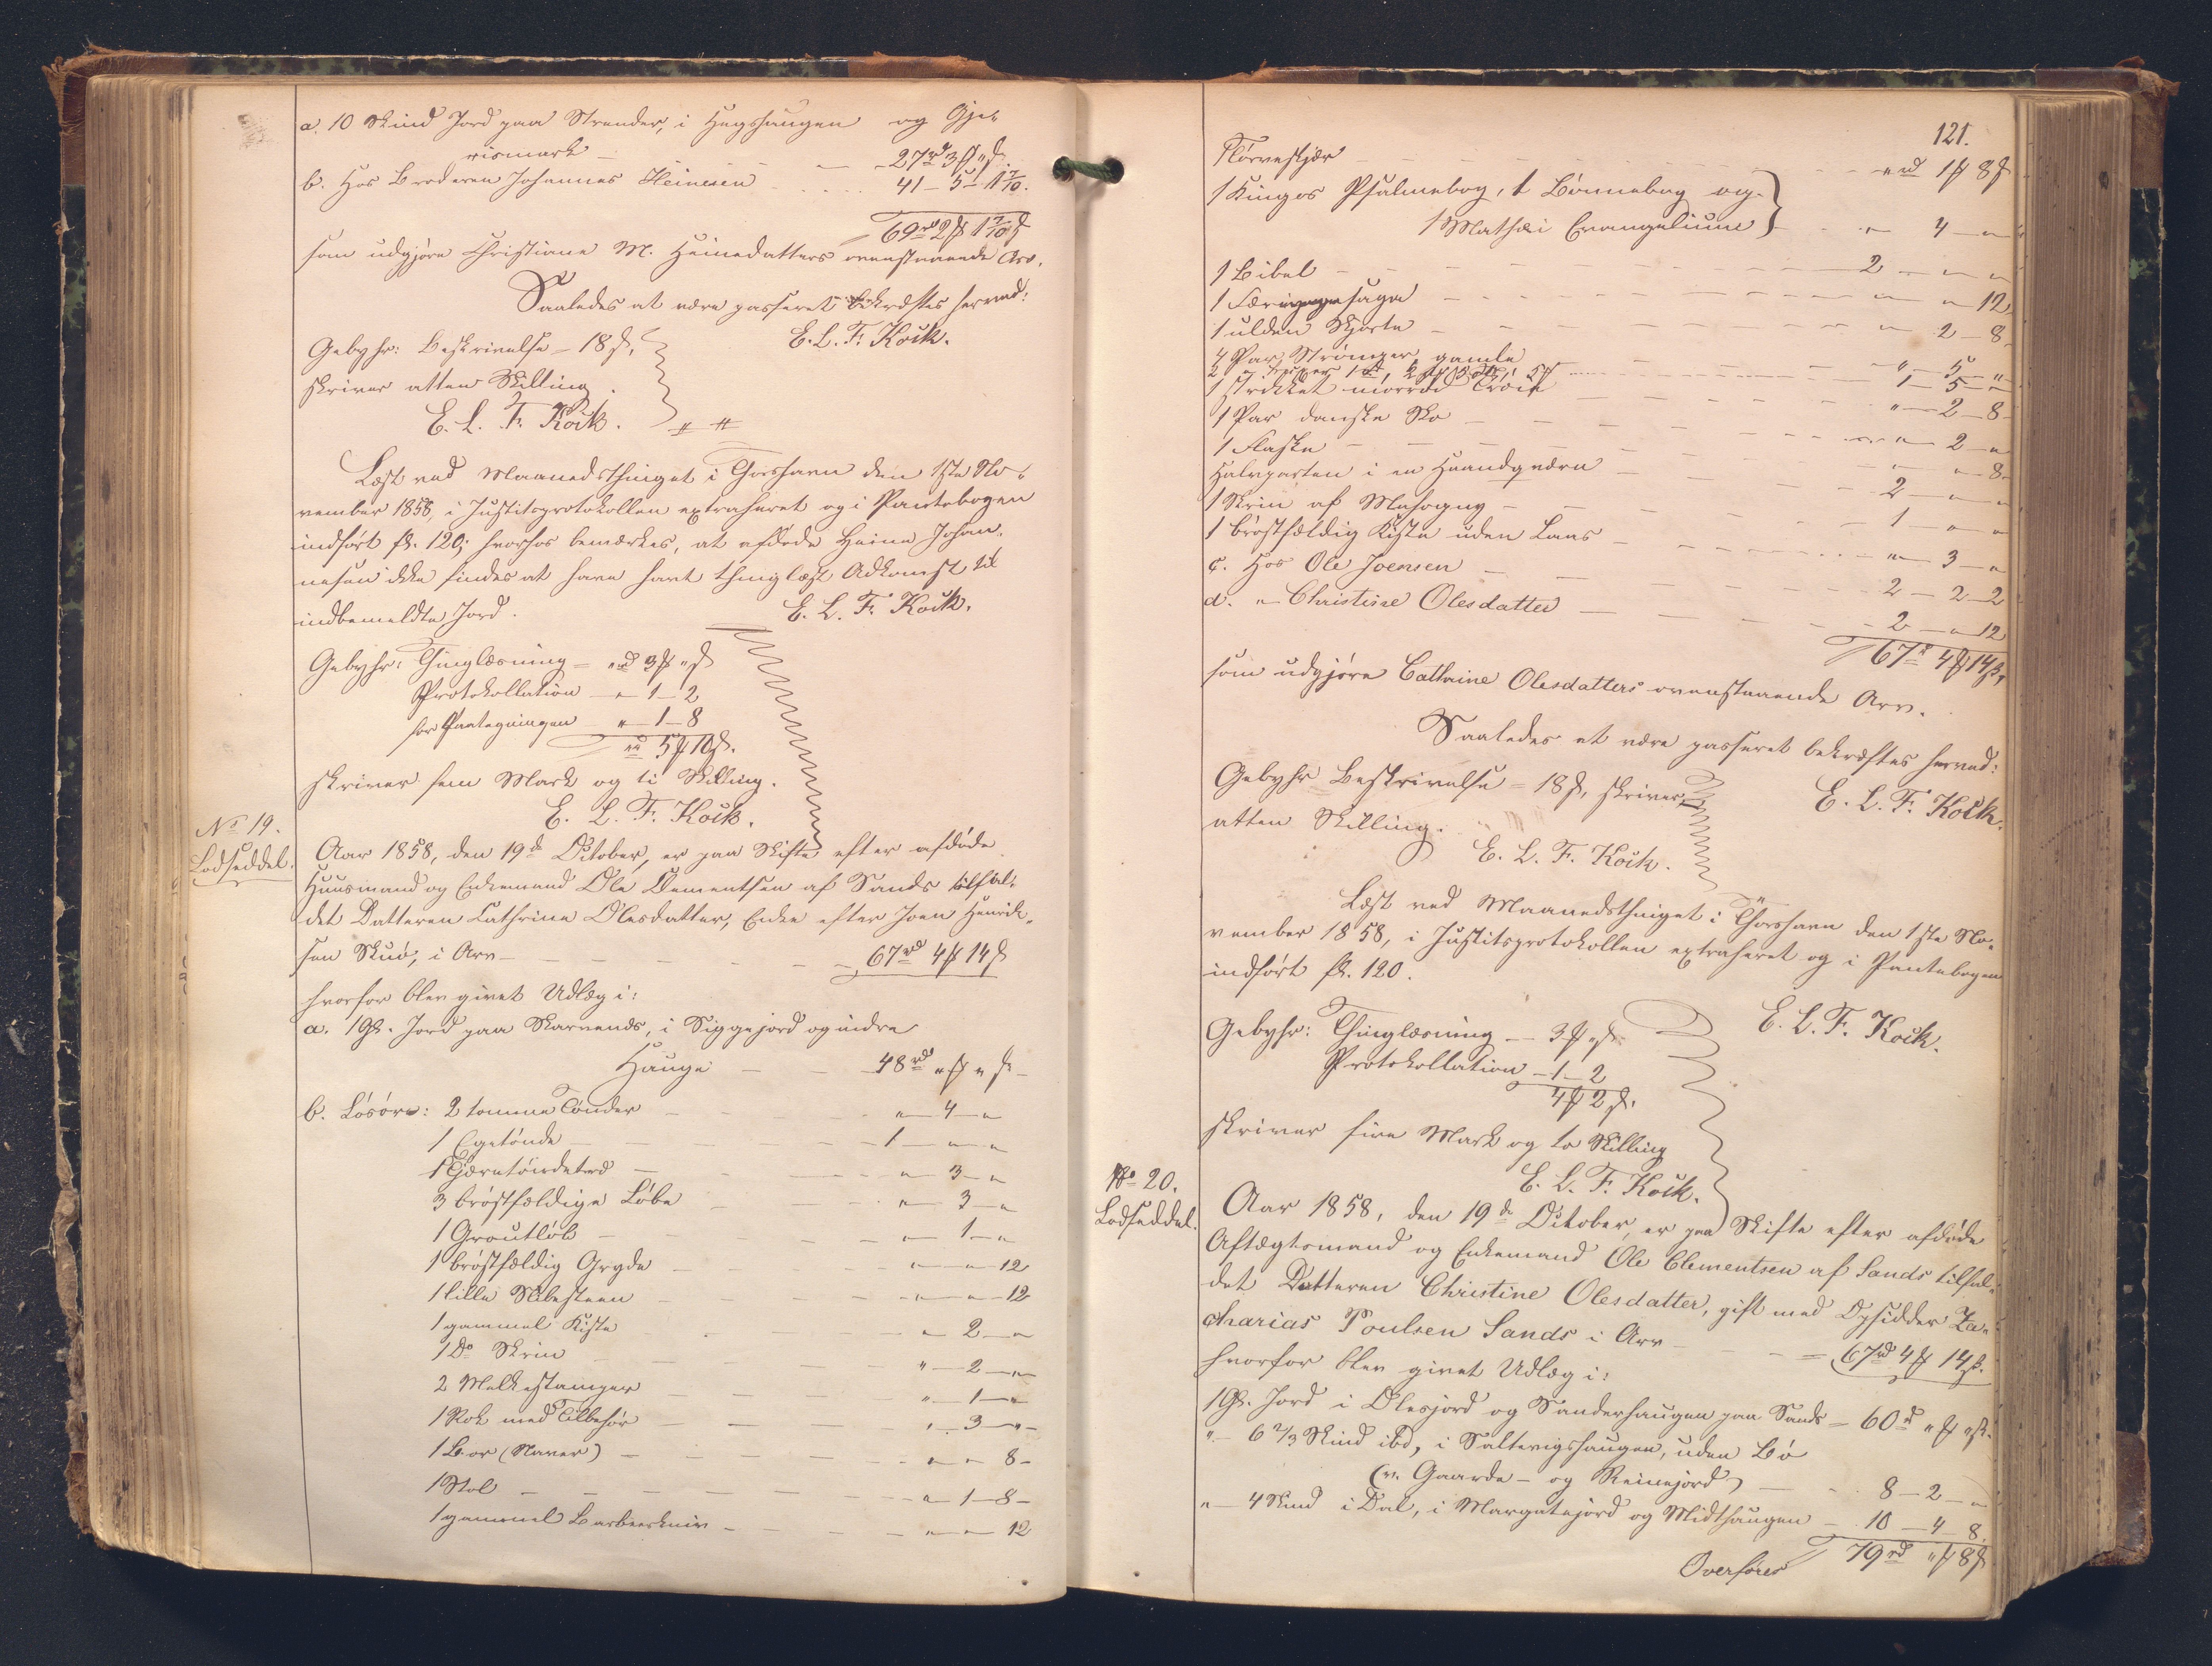 a. 10 Skind Jord paa Strender, i Hugshaugen og Gje-
rismark — 27rd 3ß "ß
b. Hos Broderen Johannes Heinesen — 41 – 5 – 1 7/10.
69rd 2ß 1 7/10 ß
som udgjøre Christiane M. Heinesdatters ovenstaaende Arv.
Saaledes at være passeret bekræftes herved:
E. L. F. Kock.
Gebyhr: Beskrivelse – 18 ß,
skriver atten Skilling.
E. L. F. Kock.
Læst ved Maanedsthinget i Thorshavn den 1ste No-
vember 1858, i Justitsprotokollen extraheret og i Pantebogen
indført fol. 120; hvorhos bemærkes, at afdøde Heine Johan-
nesen ikke findes at have havt thinglæst Adkomst til
indbemeldte Jord.
E. L. F. Kock.
Gebyhr: Thinglæsning – "rd 3ß "ß
Protokollation – " – 1 – 2
for Paategningen " – 1 – 8
"rd 5ß 10ß.
skriver fem Mark og ti Skilling.
E. L. F. Kock.
No 19.
Lodseddel.
Aar 1858, den 19de October, er paa Skifte efter afdøde
Huusmand og Enkemand Ole Clementsen af Sands tilfal-
det Datteren Cathrine Olesdatter, Enke efter Joen Henrik-
sen Skuø, i Arv — 67rd 4ß 14ß
hvorfor blev givet Udlæg i:
a. 1 Gl. Jord paa Skarvends, i Siggejord og indre
Hauge — 48rd "ß "ß –
b. Løsøre: 2 tomme Tønder — " – 4 – "
1 Egetønde — 1 – " – "
1 Tjæretønde — " – 3 – "
3 brøstfældige Løbe — " – 3 – "
1 Groutløb — " – 1 – "
1 brøstfældig Gryde — " – " – 12
1 lille Slibesteen — " – " – 12
1 gammel Kiste — " – 2 – "
1 Do Skrin — " – 2 – "
2 Melkestamper — " – 1 – "
1 Rok med Tilbehør — " – 3 – "
1 Bor (Naver) — " – " – 8 –
1 Stol — " – 1 – 8 –
1 gammel Barbeerkniv — " – " – 12
121.
— "rd 1ß 8ß
1 Kingos Psalmebog, 1 Bønnebog og
1 Mathæi Evangelium } — " – 4 – "
1 Bibel — 2 – " – "
1 Færingesaga — " – " – 12
1 ulden Skjorte — " – 2 – 8
4 Par Strømper, gamle — " – 5 – "
1 strikket Trøie — 1 – 5 – "
1 Par danske Sko — " – 2 – 8
1 Flaske — " – 2 – "
Halvparten i en Haandqværn — " – " – 8
1 Skrin af Mahogny — 2 – " – "
1 brøstfældig Kiste uden Laas — 1 – " – "
c. Hos Ole Joensen — " – 3 – "
d. " – Christine Olesdatter — 2 – 2 – 2
2 – " – 12
67rd 4ß 14ß,
som udgjøre Cathrine Olesdatters ovenstaaende Arv.
Saaledes at være passeret bekræftes herved:
E. L. F. Kock.
Gebyhr Beskrivelse – 18ß, skriver
atten Skilling.
E. L. F. Kock.
Læst ved Maanedsthinget i Thorshavn den 1ste No-
vember 1858, i Justitsprotokollen extraheret og i Pantebogen
indført fol. 120.
E. L. F. Kock.
Gebyhr: Thinglæsning — 3ß "ß
Protokollation – 1 – 2
4ß 2ß.
skriver fire Mark og to Skilling
E. L. F. Kock.
No 20.
Lodseddel.
Aar 1858, den 19de October, er paa Skifte efter afdøde
Aftægtsmand og Enkemand Ole Clementsen af Sands tilfal-
det Datteren Christine Olesdatter, gift med Opsidder Za-
charias Poulsen Sands i Arv — 67rd 4ß 14ß.
hvorfor blev givet Udlæg i:
1 Gl. Jord i Olesjord og Sanderhaugen paa Sands – 60rd "ß "ß.
" – 6 2/3 Skind ibd, i Saltvigshaugen, uden Bø
(v. Gaarde- og Reinejord) — 8 – 2 – "
" – 4 Skind i Dal, i Margatejord og Midthaugen – 10 – 4 – 8
Overføres 79rd "ß 8ß